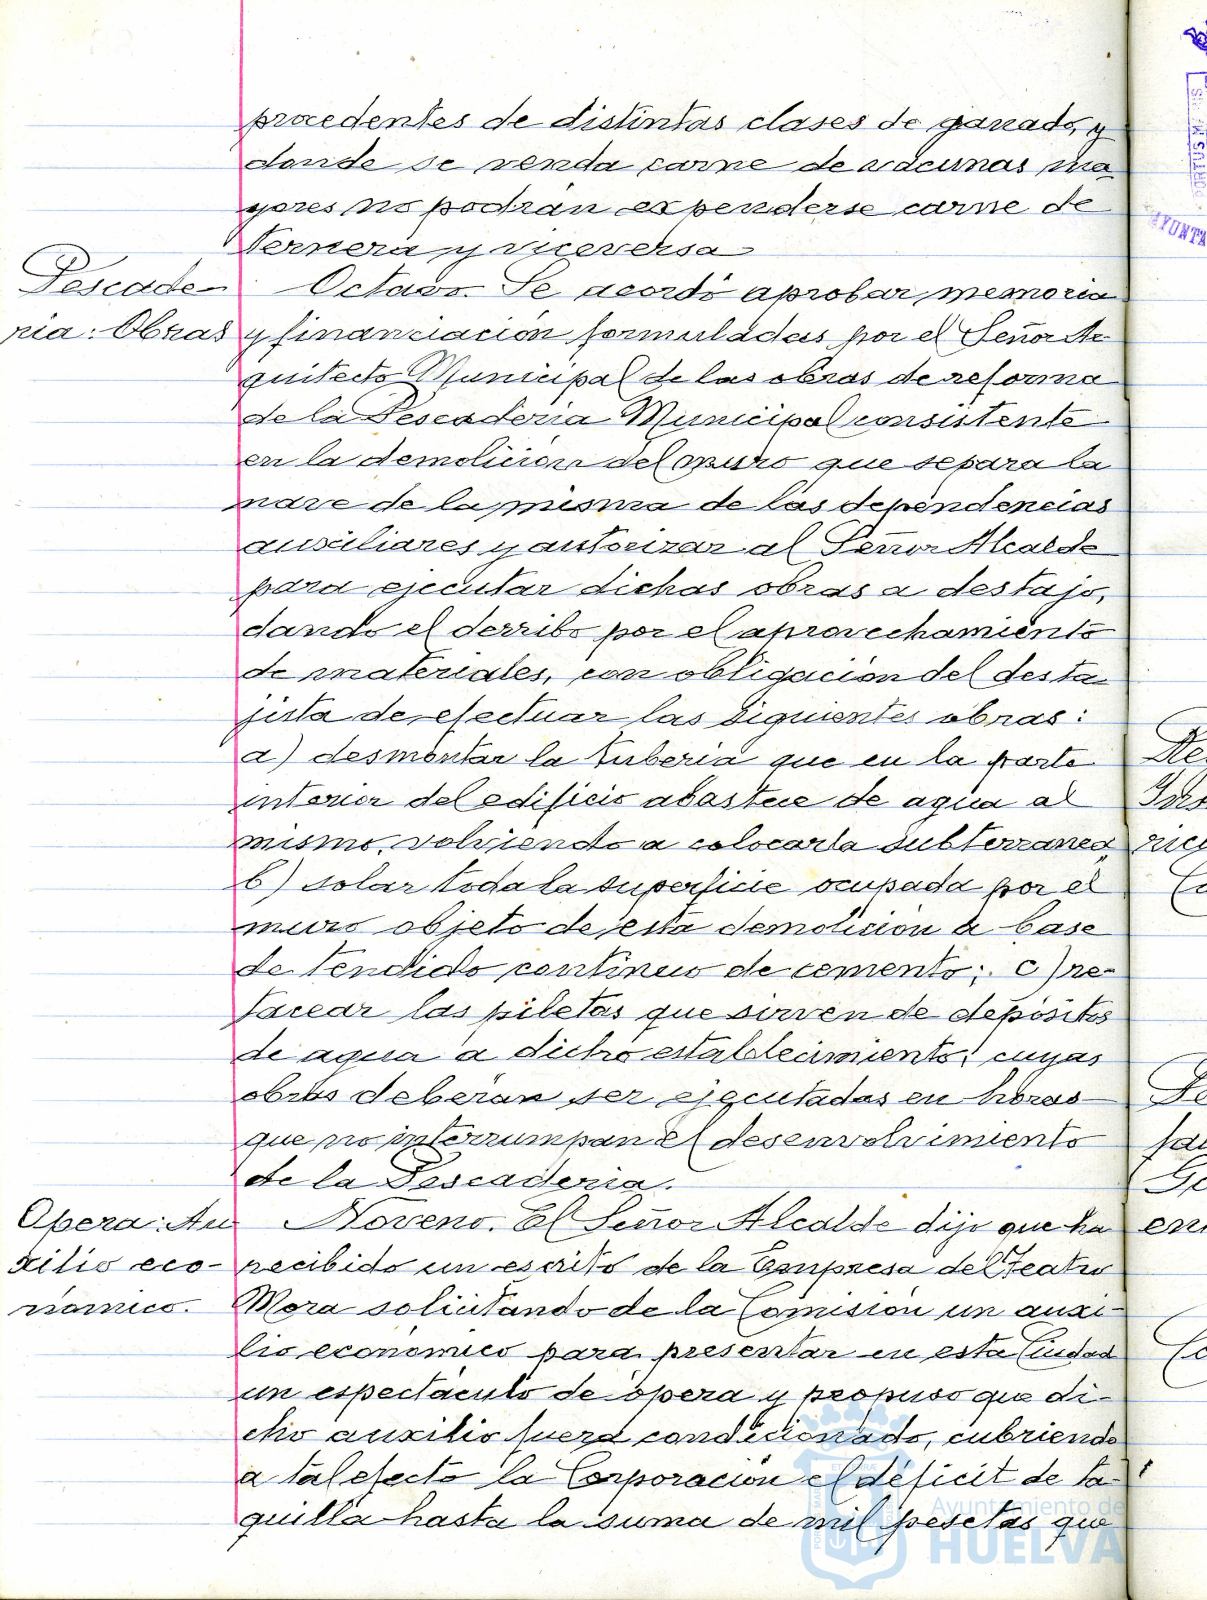 procedentes de distintas clases de ganado, y
donde se venda carne de vacunas ma
yores no podrán expenderse carne de
ternera y viceversa
Pescade-
ria: Obras
Octavo. Se acordó aprobar, memoria
y financiación formuladas por el Señor Ar-
quitecto Municipal de las obras de reforma
de la Pescaderia Municipal consistente
en la demolición del muro que separa la
nave de la misma de las dependencias
auxiliares y autorizar al Señor Alcalde
para ejecutar dichas obras a destajo,
dando el derribo por el aprovechamiento
de materiales, con obligación del desta-
jista de efectuar las siguientes obras:
a) desmontar la tuberia que en la parte
interior del edificio abastece de agua al
mismo, volviendo a colocarla subterranea
b) solar toda la superficie ocupada por el
muro objeto de esta demolición a base
de tendido continuo de cemento; c) re-
tacear las piletas que sirven de depósitos
de agua a dicho establecimiento; cuyas
obras deberán ser ejecutadas en horas
que no interrumpan el desenvolvimiento
de la Pescaderia.
Opera: Au
xilio eco-
nómico.
Noveno. El Señor Alcalde dijo que ha
recibido un escrito de la Empresa del Teatro
Mora solicitando de la Comisión un auxi-
lio económico para presentar en esta Ciudad
un espectáculo de ópera y propuso que di-
cho auxilio fuera condicionado, cubriendo
a tal efecto la Corporación el déficit de ta-
quilla hasta la suma de mil pesetas que
Ayuntamiento de
HUELVA